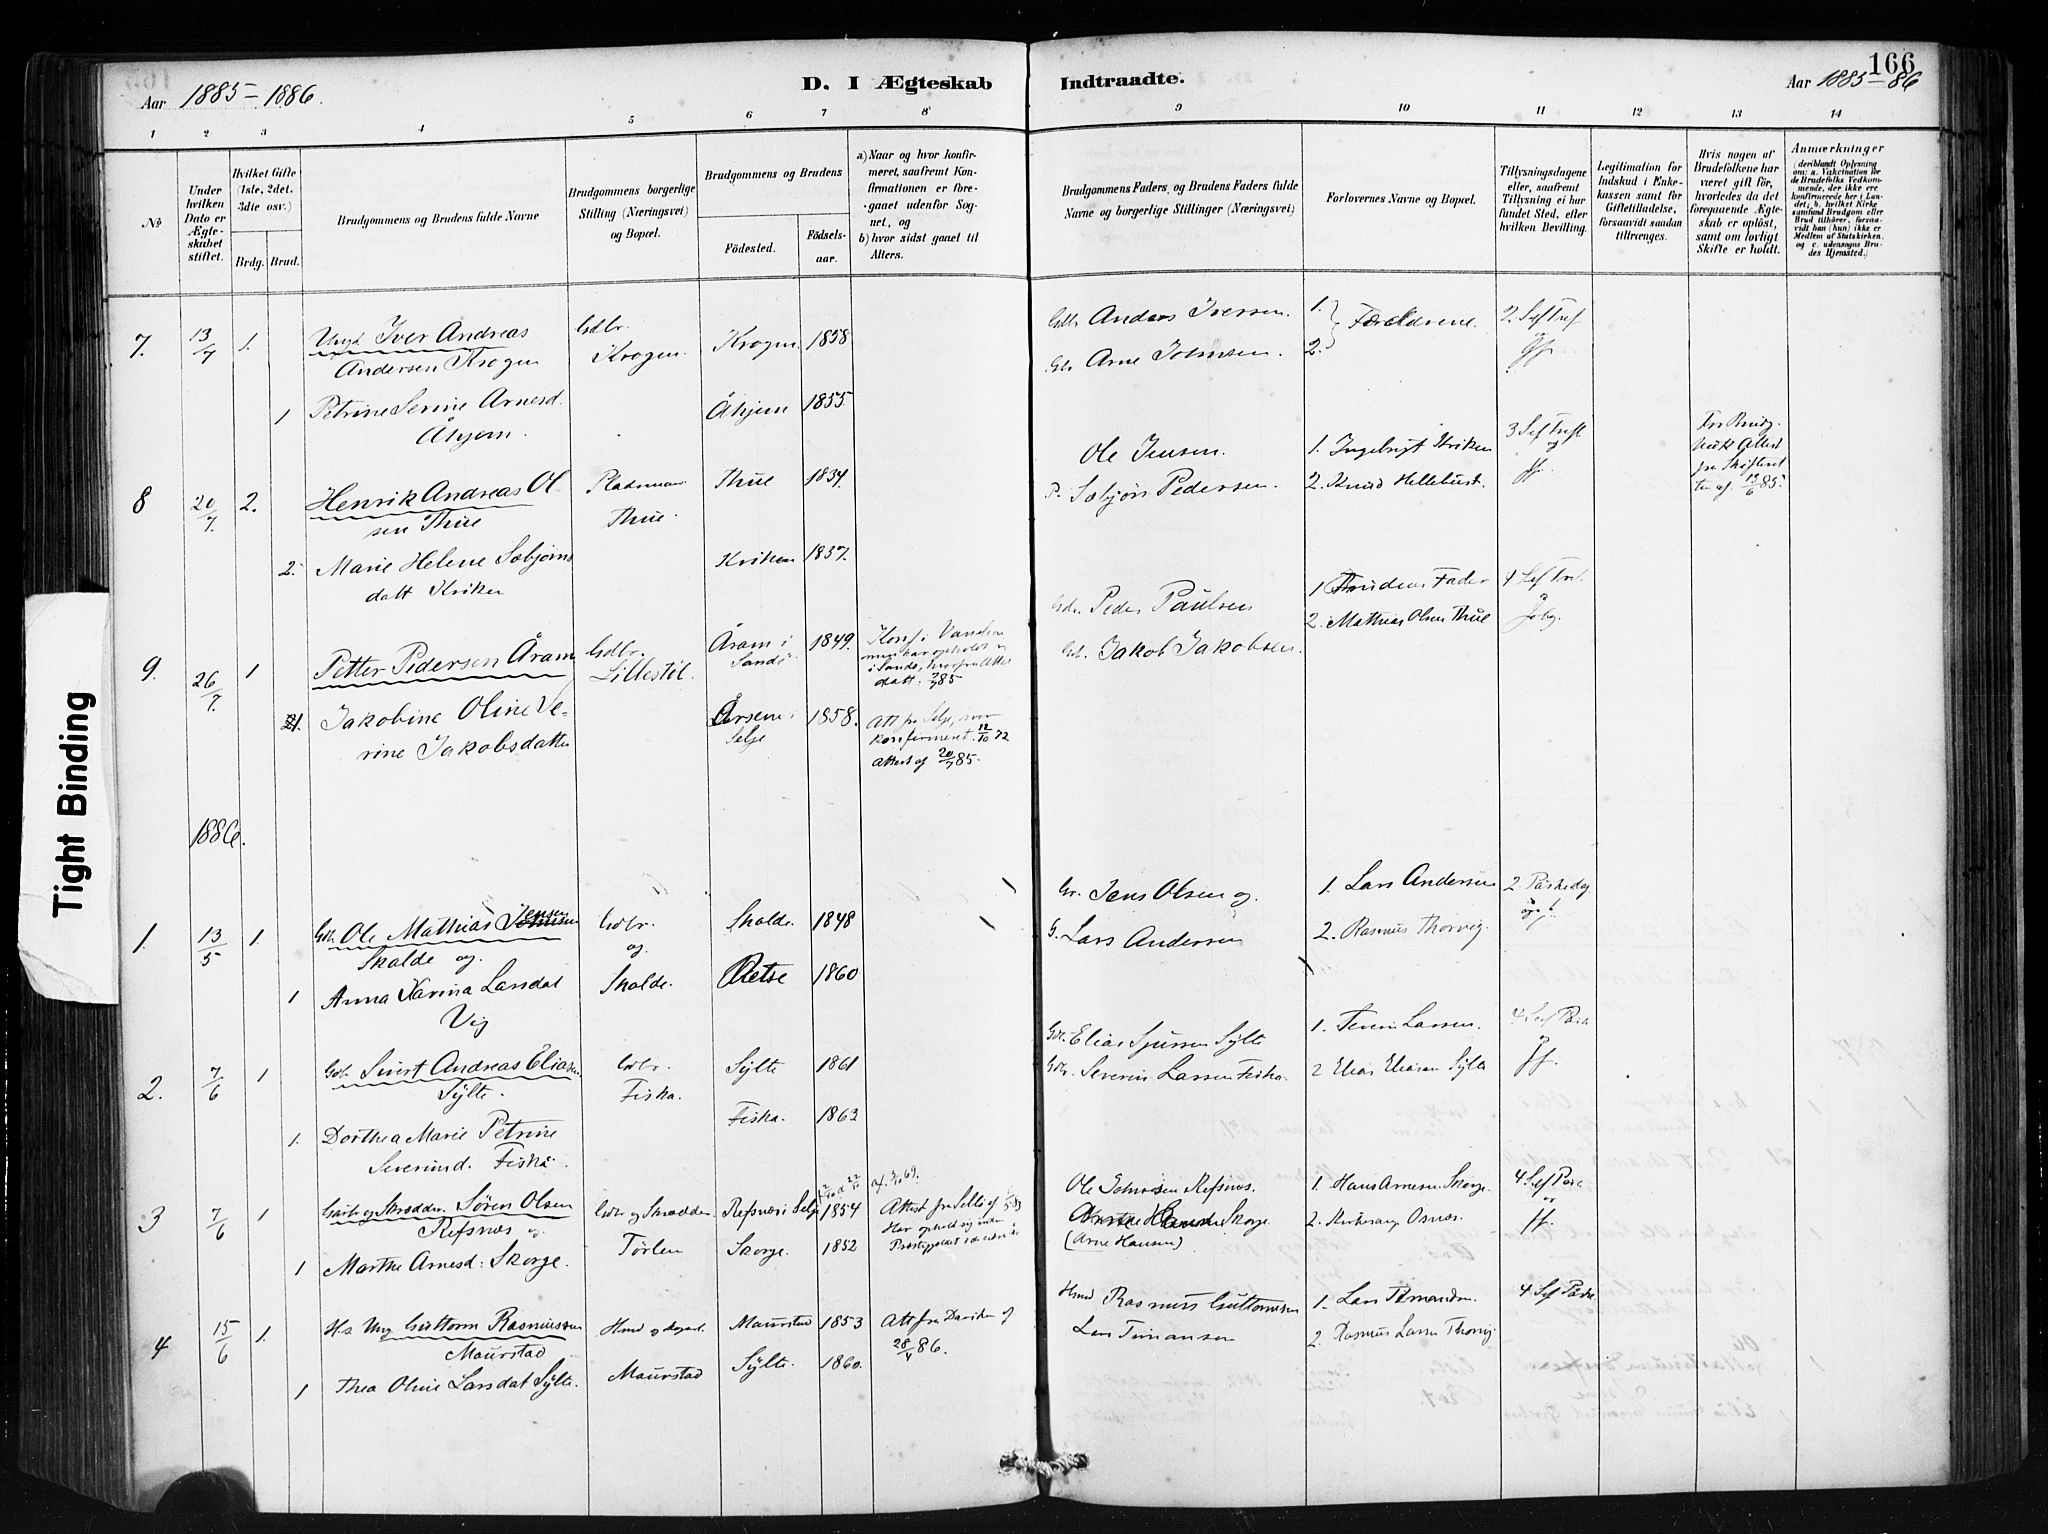 166
Aar 1885-1886.
D. I Ægteskab Indtraadte.
Aar 1885-86
1 2 3 4 5 6 7 8 9 10 11 12 13 14
No
Under hvilken Dato er Ægteskabet stiftet.
Hvilket Gifte (1ste, 2det, 3die osv.)
Brdg. Brud.
Brudgommens og Brudens fulde Navne
Brudgommens borgerlige Stilling (Næringsvei) og Bopæl.
Brudgommens og Brudens
Födested.
Födselsaar.
a) Naar og hvor konfirmeret, saafremt Konfirmationen er foregaaet udenfor Sognet, og
b) hvor sidst gaaet til Alters.
Brudgommens Faders, og Brudens Faders fulde Navne og borgerlige Stillinger (Næringsvei)
Forlovernes Navne og Bopæl.
Tillysningsdagene eller, saafremt Tillysning ei har fundet Sted, efter hvilken Bevilling.
Legitimation for Indskud i Enkekassen samt for Giftetilladelse, forsaavidt saadan tiltrænges.
Hvis nogen af Brudefolkene har været gift för, hvorledes da det foregaaende Ægteskab er oplöst, samt om lovligt Skifte er holdt.
Anmærkninger
(deriblandt Oplysning om: a. Vakcination for de Brudefolks Vedkommende, der ikke ere konfirmerede her i Landet; b. hvilket Kirkesamfund Brudgom eller Brud tilhörer, forsaavidt han (hun) ikke er Medlem af Statskirken, og c. udensogns Brudes Hjemsted.)
7. 13/7 1. Ungk Iver Andreas Andersen Krogen
Gdbr. Krogen.
Krogen. 1858.
Gdbr Anders Iversen.
1. 2. } Forældrene.
1 Petrine Serine Arnesd. Åhjem.
Åhjem 1855
Arne Johnsen.
8 20/7 2. Henrik Andreas Olsen Thue
Pladsman Thue.
Thue 1834.
Ole Jensen.
1. Ingebrigt Kriken
2. Knud Hellebust.
2. Marie Helene Sæbjörnsdatt Kriken
Kriken 1837.
P. Sæbjörn Pedersen.
9. 26/7 1 Petter Pedersen Åram
Gdbr. Lillestöl.
Åram i Sandö. 1849.
Peder Paulsen
1 Brudens Fader
2. Mathias Olsen Thue
1. Jakobine Oline Verine Jakobsdatter
Årsene i Selje 1858.
Att fra Selje, hvor konfirmeret 12/10 72
Attest af 20/7 85.
Jakob Jakobsen.
1886.
1. 13/5 1. Gdbr Ole Mathias Jensen Skalde og
Gdbr. og Skalde.
Skalde. 1848
Gbr. Jens Olsen og
1. Lars Andersen
2. Rasmus Thorvig.
1 Anna Karina Larsdat Vig
Retse 1860
G. Lars Andersen
2. 7/6 1 Gdbr. Sivert Andreas Eliasen Sylte.
Gdbr. Fiska.
Sylte 1861
Gdbr. Elias Sjursen Sylte
1. Severin Larsen.
2 Elias Eliasen Sylte
1. Dorthea Marie Petrine Severind. Fiskå.
Fiska. 1863
Gdbr. Severin Larsen Fiska.
3 7/6 1 Gårdbr og Skrædder. Sören Olsen Refsnæs og
Gdbr og Skrædder Törlen
Refsnæs i Selje 1854
Ole Johnsen Refsnæs.
1. Hans Arnesen Skorge.
1 Marthe Arnesd: Skorge.
Skorge. 1852
(Arne Hansen)
4 15/6 1. Guttorm Rasmussen Maurstad
Maurstad
Maurstad 1853
Att fra Daviken af 28/4 86.
Rasmus Guttormsen
2. Rasmus Larsen Thorvig
1 Thea Oline Larsdat Sylte.
Sylte. 1860.
Lars Timansen
Tight Binding